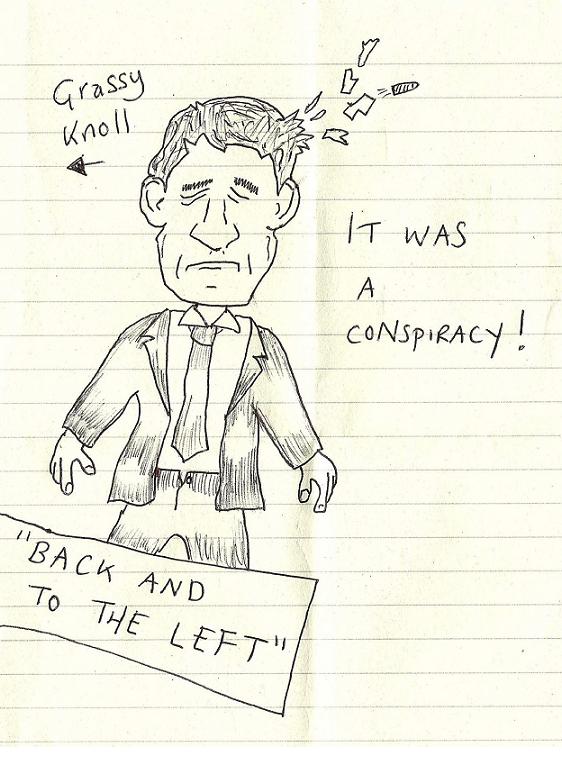 Grassy
Knoll
IT WAS
A
CONSPIRACY!
"BACK AND
TO THE LEFT"